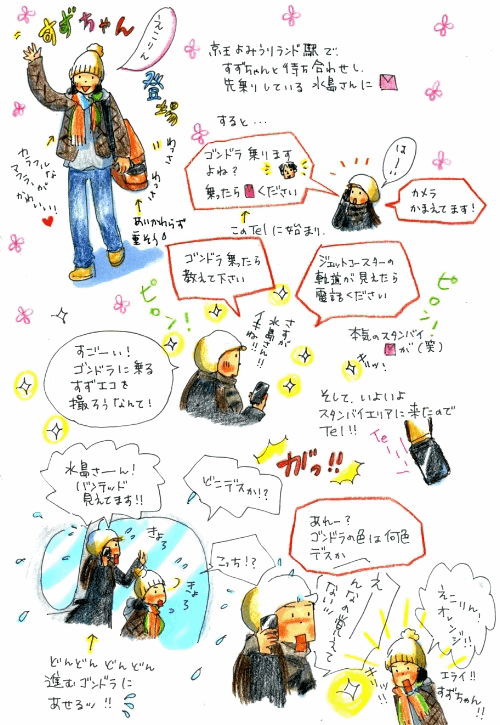 すずちゃん
えこりん
登場
京王よみうりランド駅で、
すずちゃんと待ち合わせし、
先乗りしている 水島さんに
カラフルな
マフラーが
かわいい!
わっさ
わっさ
あいかわらず
重そう
すると…
ゴンドラ 乗ります
よね?
乗ったら ください
はーい
カメラ
かまえてます!
このTelに始まり、
ゴンドラ 乗ったら
教えて下さい
ジェットコースターの
軌道が見えたら
電話ください
ピロン!
ピロン!
さすが
水島さん!!
イキだね!!
本気のスタンバイ
が(笑)
すごーい!
ゴンドラに乗る
すずエコを
撮ろうなんて!
そして、いよいよ
スタンバイエリアに来たので
Tel!!
Te
ガっ!!
水島さーん!
バンデッド
見えてます!!
どこデスか!?
きょろ
きょろ
こっち!?
あれー?
ゴンドラの色は何色
デスか
え
んなの覚えて
ないッ
えこりん、
オレンジ!!
エライ!!
すずちゃん!!
どんどん どんどん
進むゴンドラに
あせるッ!!